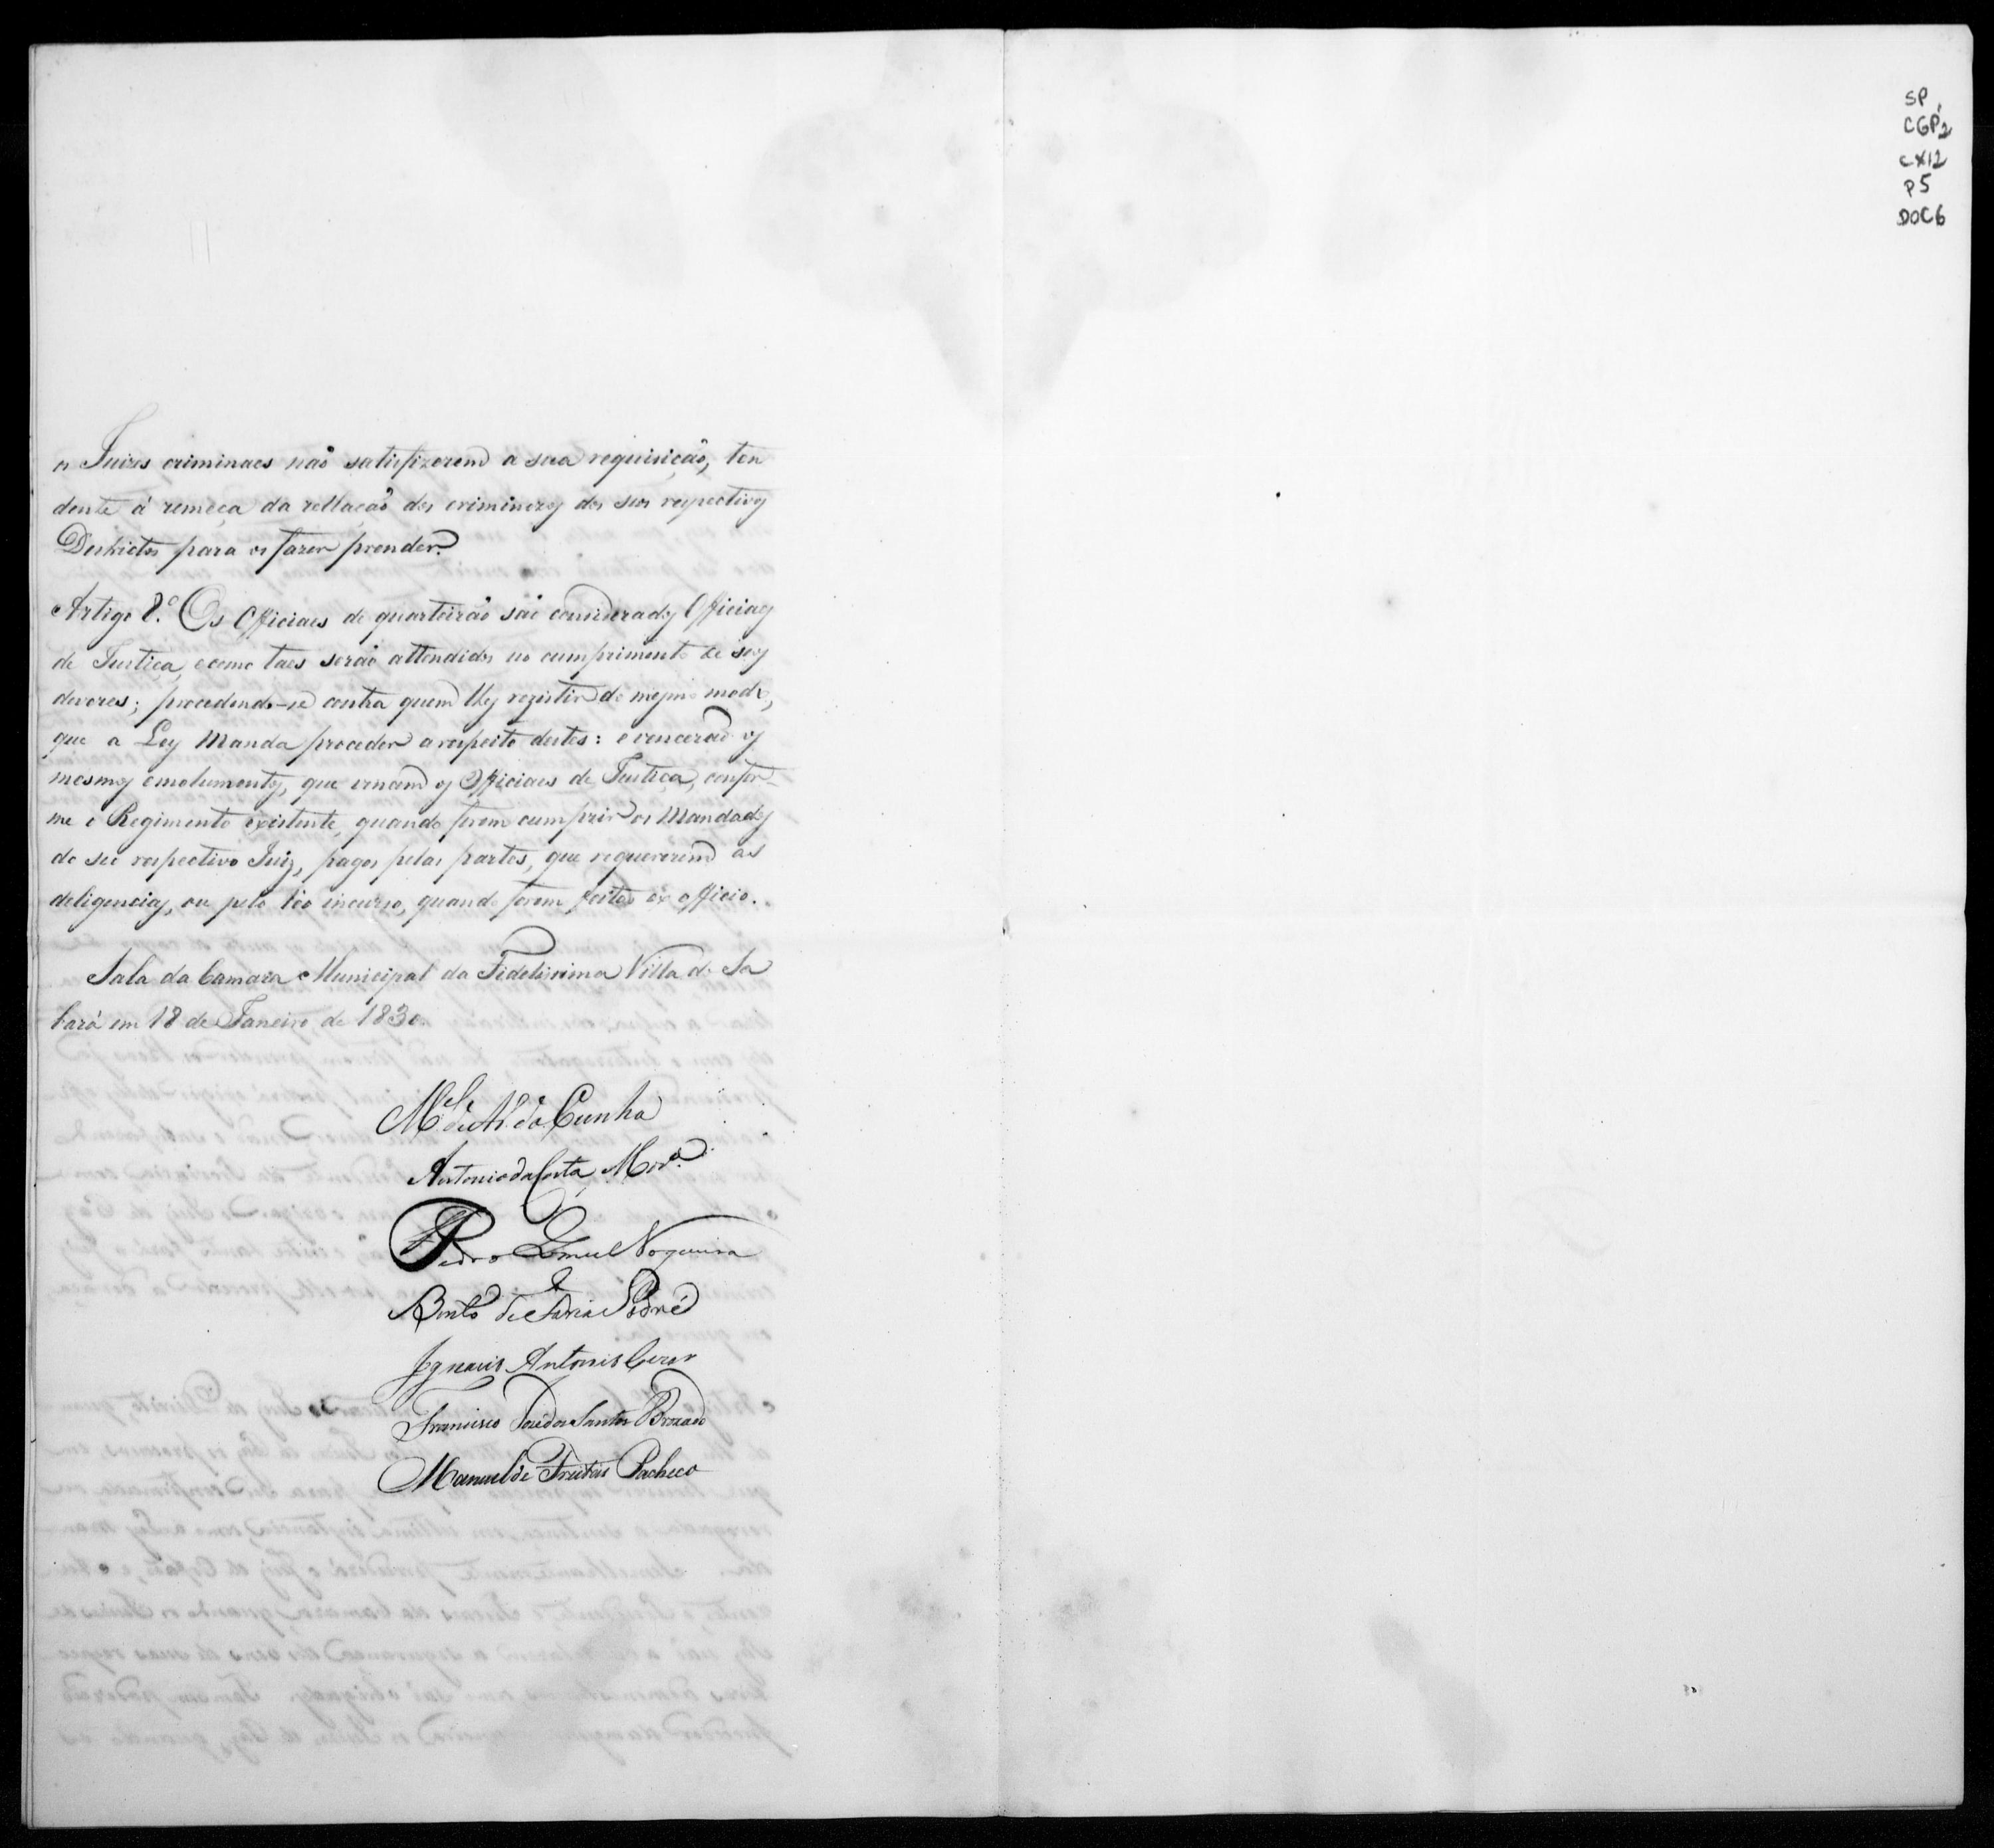 os Juizes criminaes não satisfizerem a sua requisição, ten
dente á remeça da rellação dos criminozos dos seos respectivos
Destrictos para os fazer prender.
Artigo 8.º Os Officiaes de quarteirão são considerados Officiaes
de Justiça, e como taes serão attendidos no cumprimento de seos
deveres; procedendo-se contra quem lhes rezistir do mesmo modo,
que a Ley Manda proceder a respeito destes: e vencerão os
mesmos emolumentos, que vencem os Officiaes de Justiça, confor-
me o Regimento existente, quando forem cumprir os Mandados
do seo respectivo Juiz, pagos pelas partes, que requererem as
deligencias, ou pelo réo incurso, quando forem feitas ex officio.
Sala da Camara Municipal da Fidelissima Villa do Sa
bará em 18 de Janeiro de 1830.
M.el de da Cunha
Antonio da Costa Mor.a
Pedro Nogueira
Bento de Faria Sodré
Ignacio Antonio Cezar
Francisco José dos Santos Brochado
Manuel de Freitas Pacheco
SP
CGP2
CX12
P5
DOC6